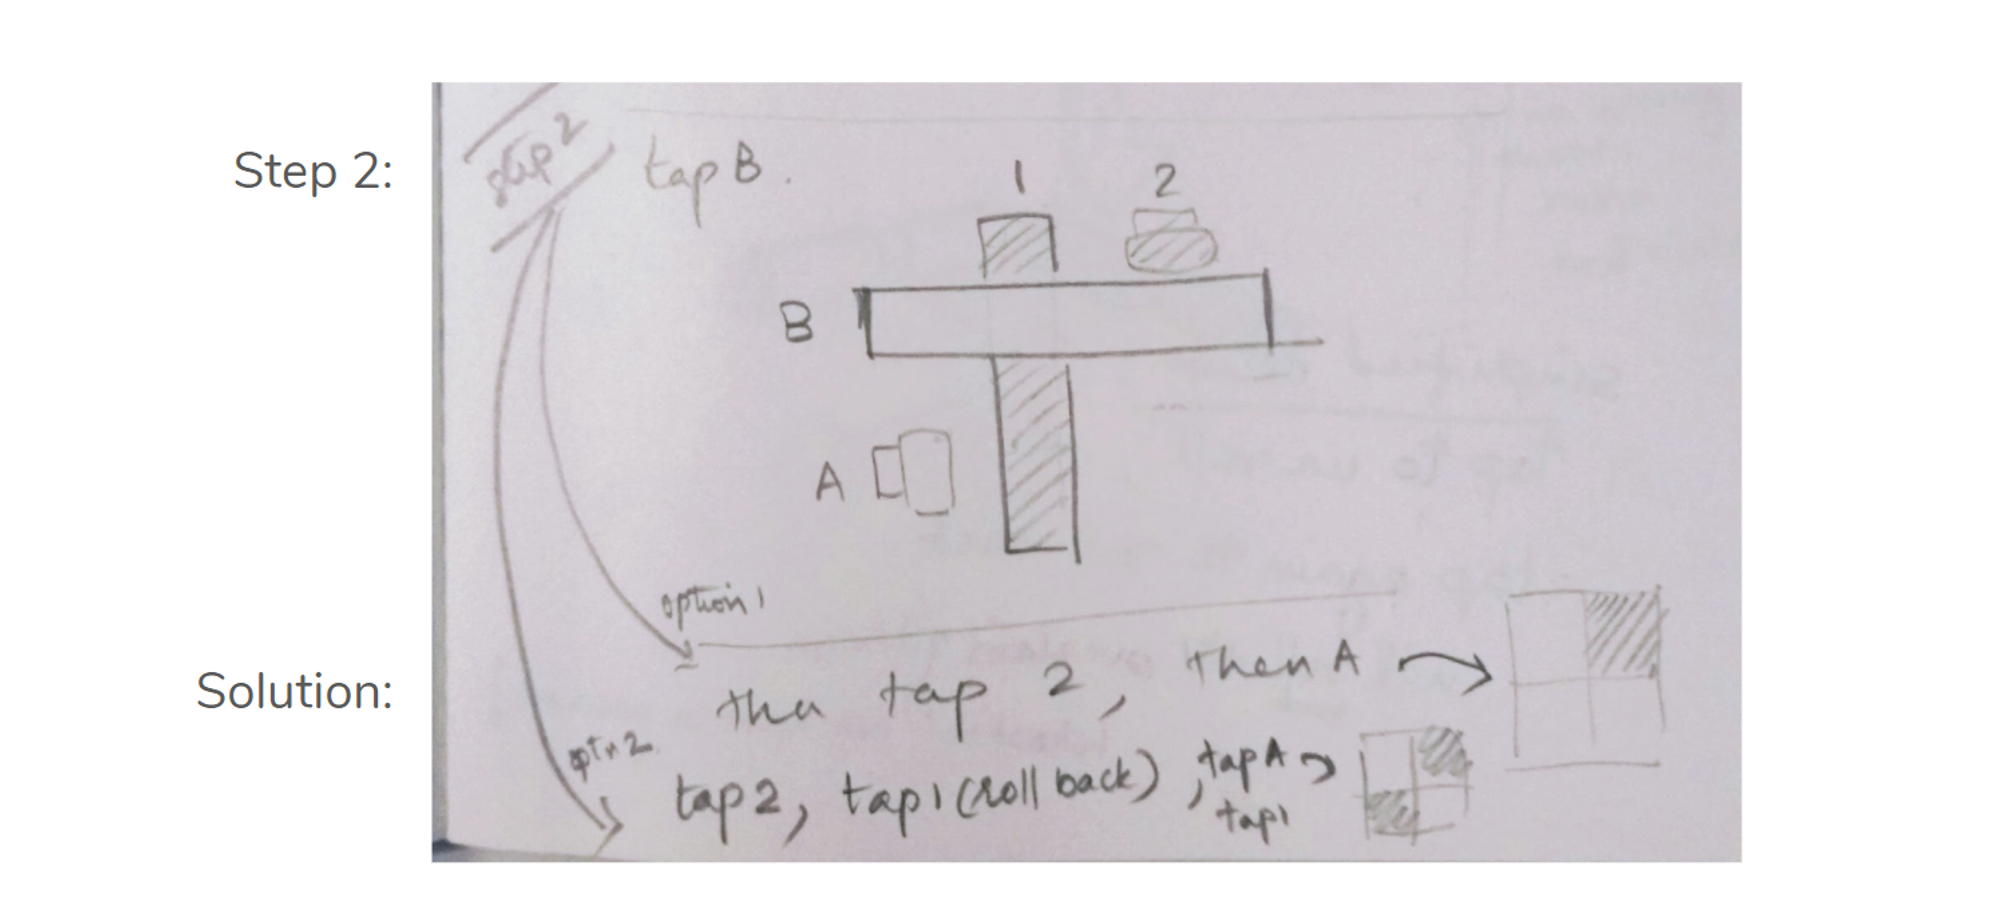 Step 2:
step 2
tap B.
1 2
B
A
option 1
Solution:
then tap 2, then A
optn 2
tap 2, tap 1 (roll back), tap A
tap 1